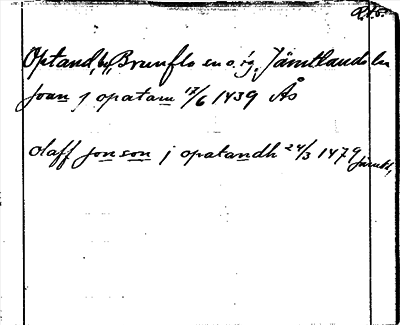 R.A.S.
Optand, by, Brunflo sn o. sg, Jämtlands ln
Joan j opatam 17/6 1439 Ås
Olaff Jonson j opatandh 24/3 1479 Jämtl,